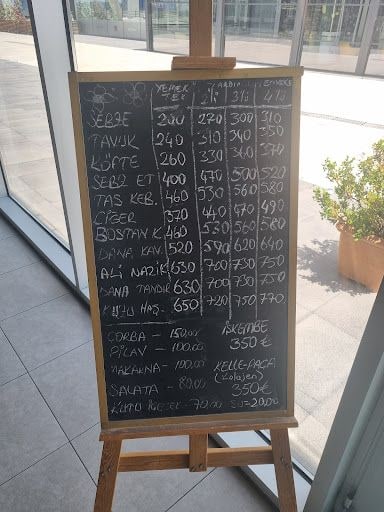 YEMEK YARDIM
TEK 2'Lİ 3'LÜ 4'LÜ
SEBZE 200 270 300 310
TAVUK 240 310 340 350
KÖFTE 260 330 360 370
SEBZ ET 400 470 500 520
TAS KEB. 460 530 560 580
CİĞER 370 440 470 490
BOSTAN K. 460 530 560 580
DANA KAV. 520 590 620 640
ALİ NAZİK 630 700 730 750
DANA TANDIR 630 700 730 750
KUZU HAŞ. 650 720 750 770
ÇORBA - 150,00 İŞKEMBE
PİLAV - 100,00 350 €
MAKARNA - 100,00 KELLE-PAÇA
(Kolajen)
SALATA - 80,00 350 €
70,00 SU = 20,00